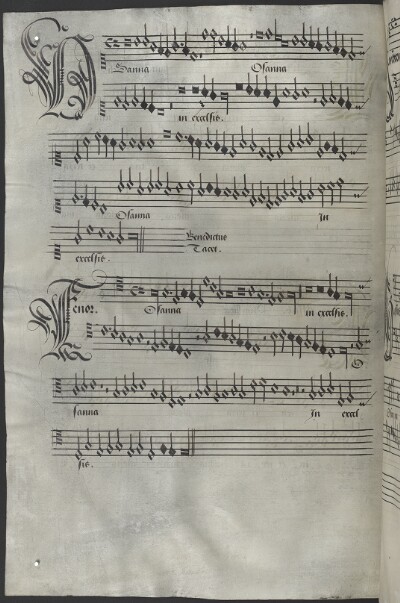 Osanna Osanna
in excelsis.
Osanna In
excelsis. Benedictus
Tacet.
Tenor. Osanna in excelsis.
O
sanna In excel
sis.